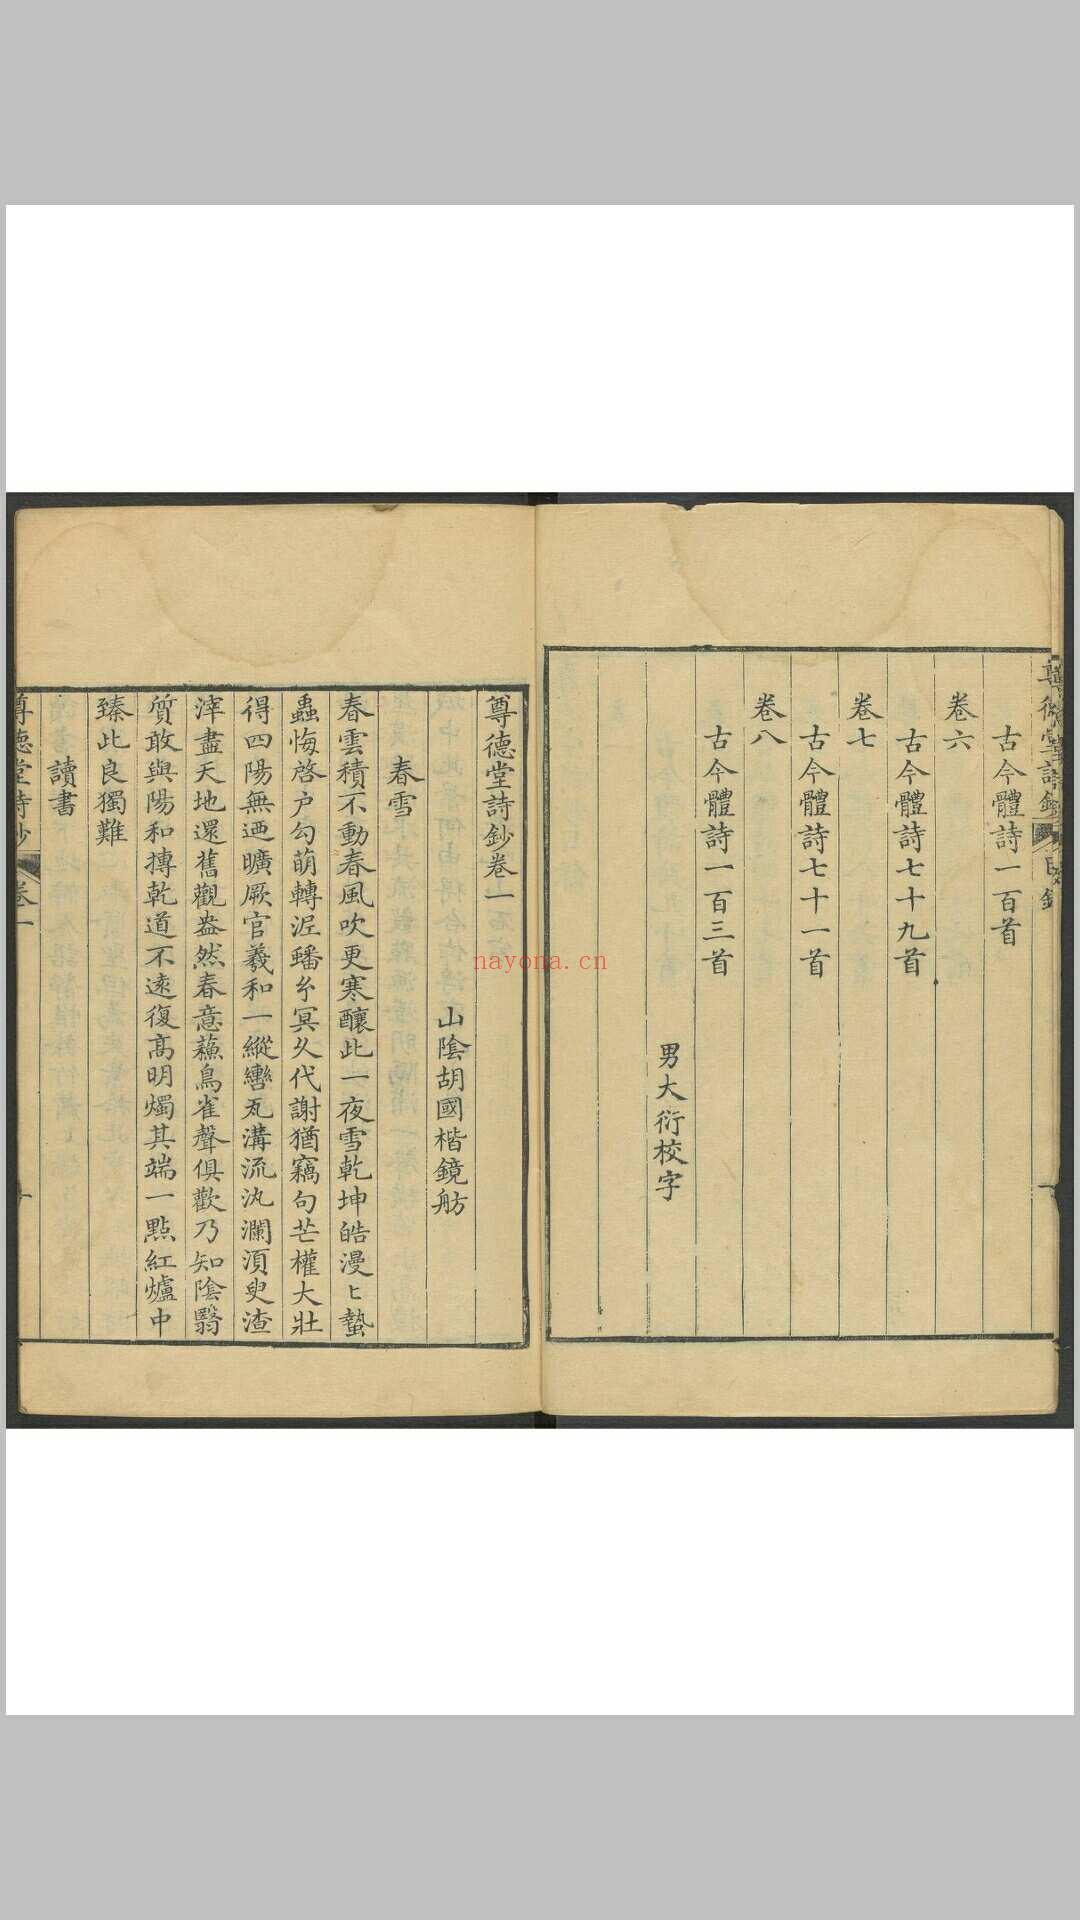 尊德堂詩鈔
目錄
一
古今體詩一百首
卷六
古今體詩七十九首
卷七
古今體詩七十一首
卷八
古今體詩一百三首
男大衍校字
尊德堂詩鈔卷一
山陰胡國楷鏡舫
春雪
春雲積不動春風吹更寒釀此一夜雪乾坤皓漫〻蟄
蟲悔啓户勾萌轉泥蟠玄冥久代謝猶竊句芒權大壯
得四陽無迺曠厥官羲和一縱轡瓦溝流汍瀾湏臾渣
滓盡天地還舊觀盎然春意蘓鳥雀聲俱歡乃知陰翳
質敢與陽和摶乾道不遠復高明燭其端一點紅爐中
臻此良獨難
讀書
尊德堂詩鈔
卷一
nayona.cn